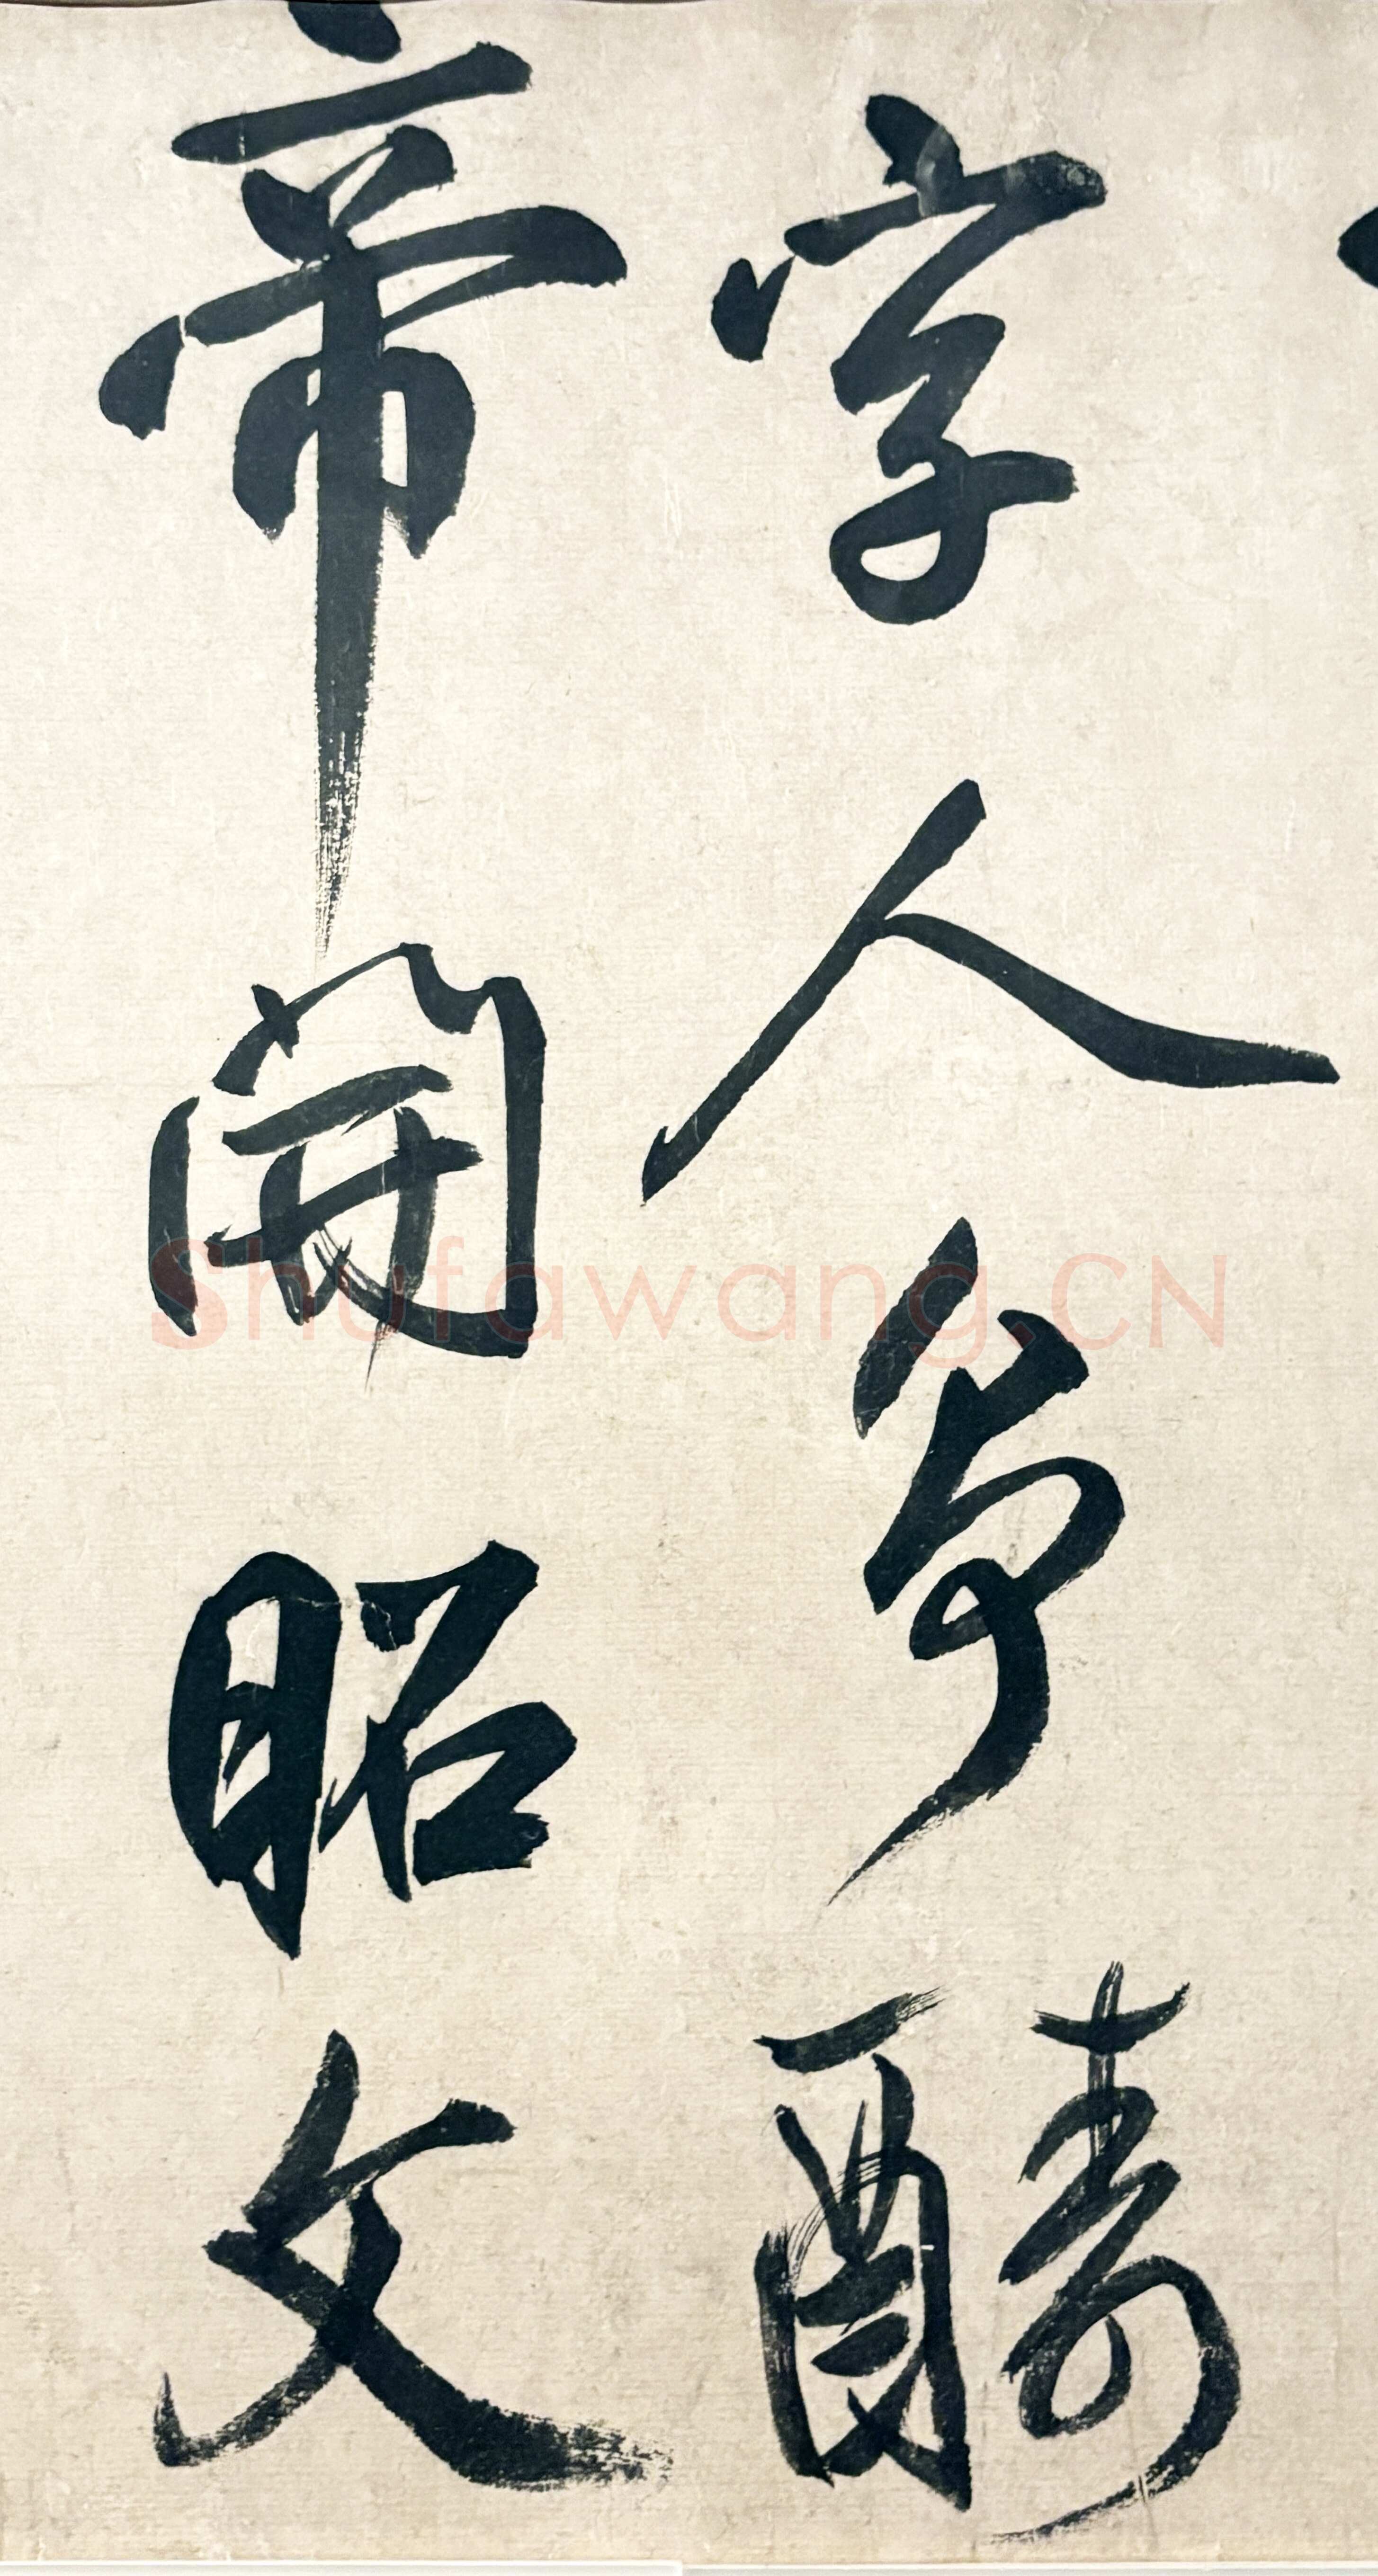 字人爭酬
帝開昭文
Shufawang.CN